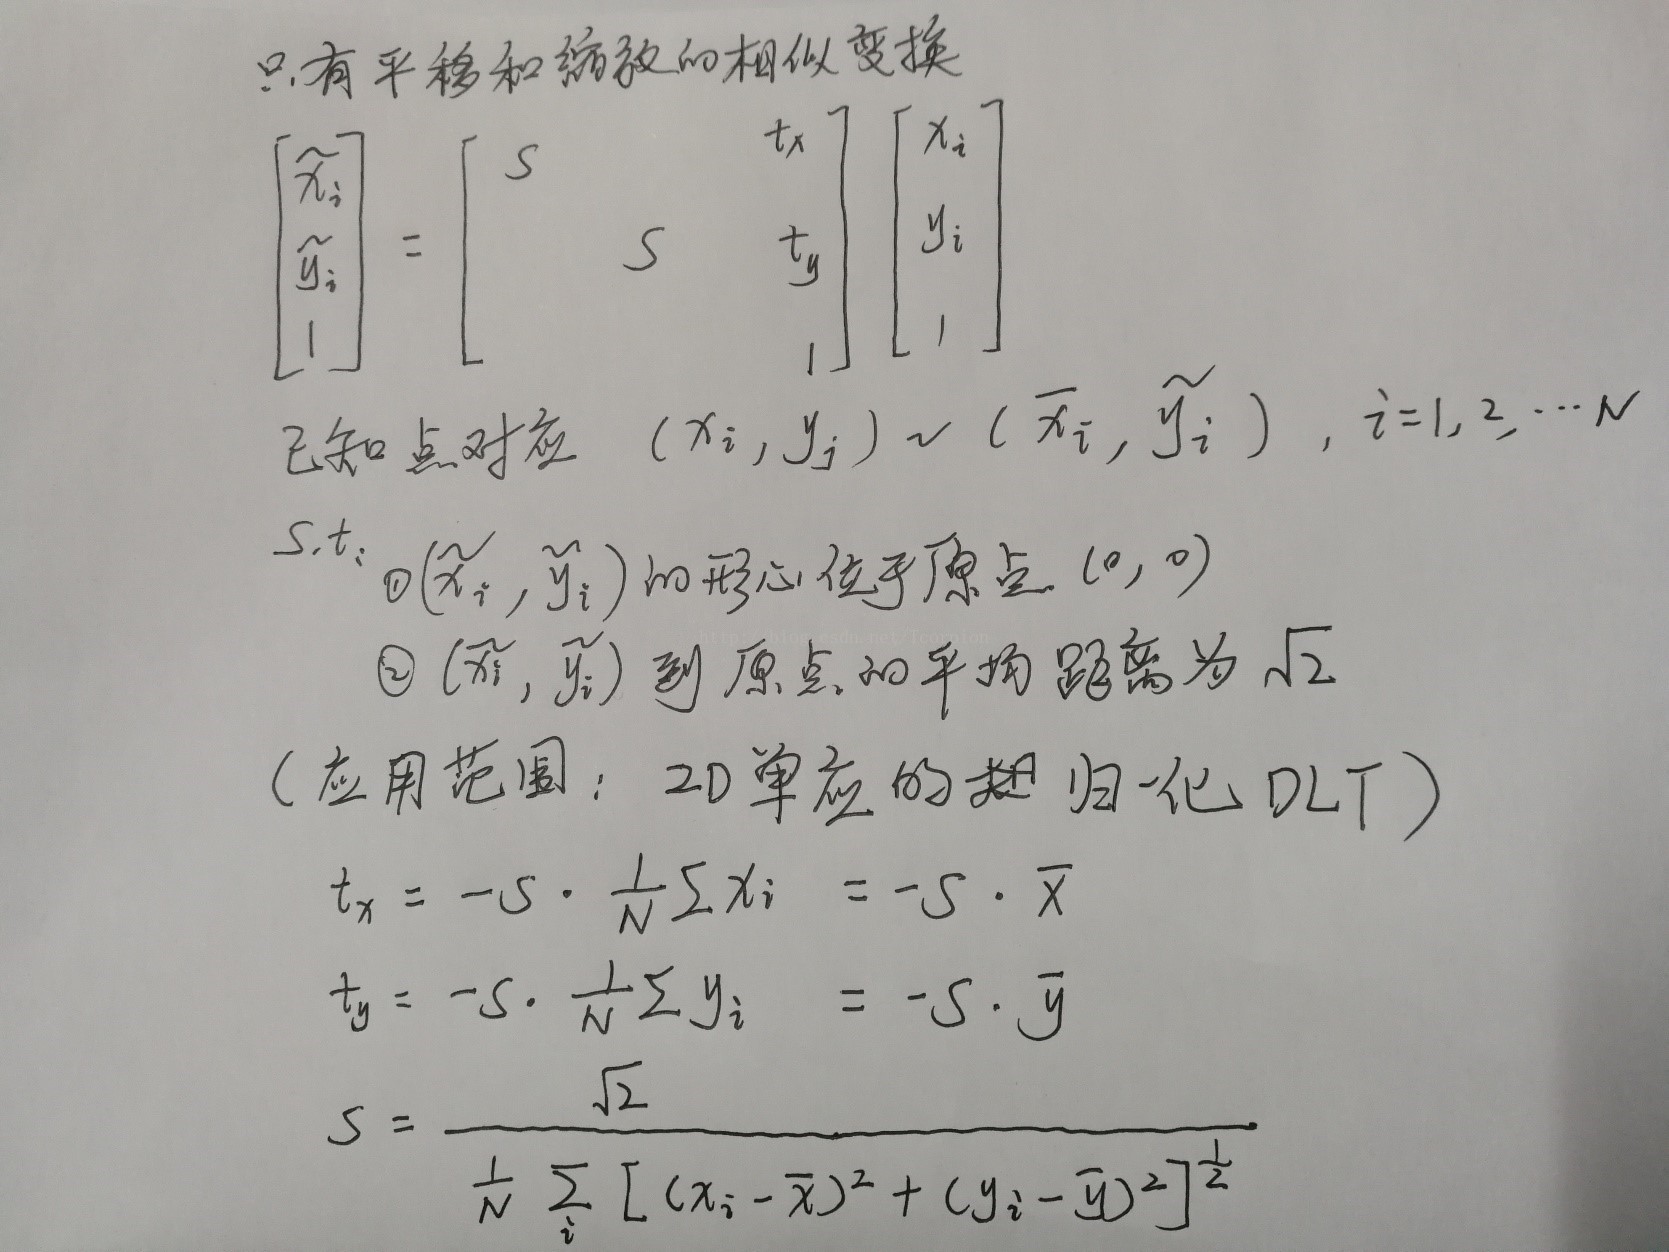 只有平移和缩放的相似变换
[x̃ᵢ ỹᵢ 1] = [s tx s ty 1] [xᵢ yᵢ 1]
已知点对应 (xᵢ, yⱼ) ~ (x̄ᵢ, ỹᵢ), i=1,2,…N
s.t.
①(x̃ᵢ, ỹᵢ)的形心位于原点(0,0)
②(x̃ᵢ, ỹᵢ)到原点的平均距离为√2
(应用范围: 2D单应的 归一化DLT)
tx = -s · 1/N Σxᵢ = -s · x̄
ty = -s · 1/N Σyᵢ = -s · ȳ
s = √2 / (1/N Σᵢ [(xᵢ-x̄)² + (yᵢ-ȳ)²]^(1/2))